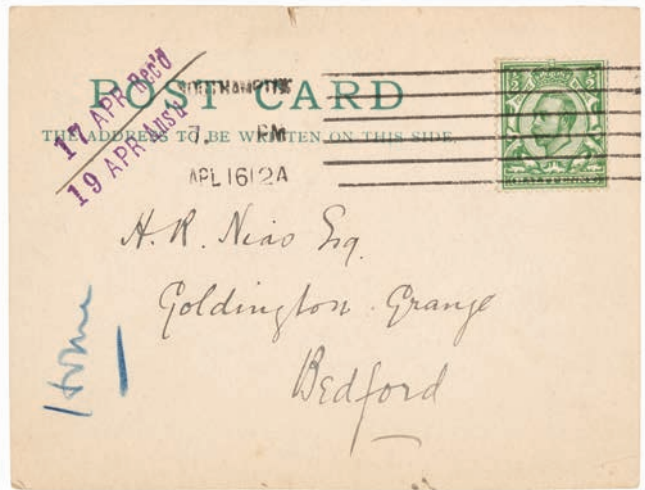 17 APR Rec'd
19 APR Ans'd
POST CARD
THE ADDRESS TO BE WRITTEN ON THIS SIDE.
7. PM
APL 16 12 A
HALFPENNY
H. R. Nias Esq.
Goldington Grange
Bedford
Home